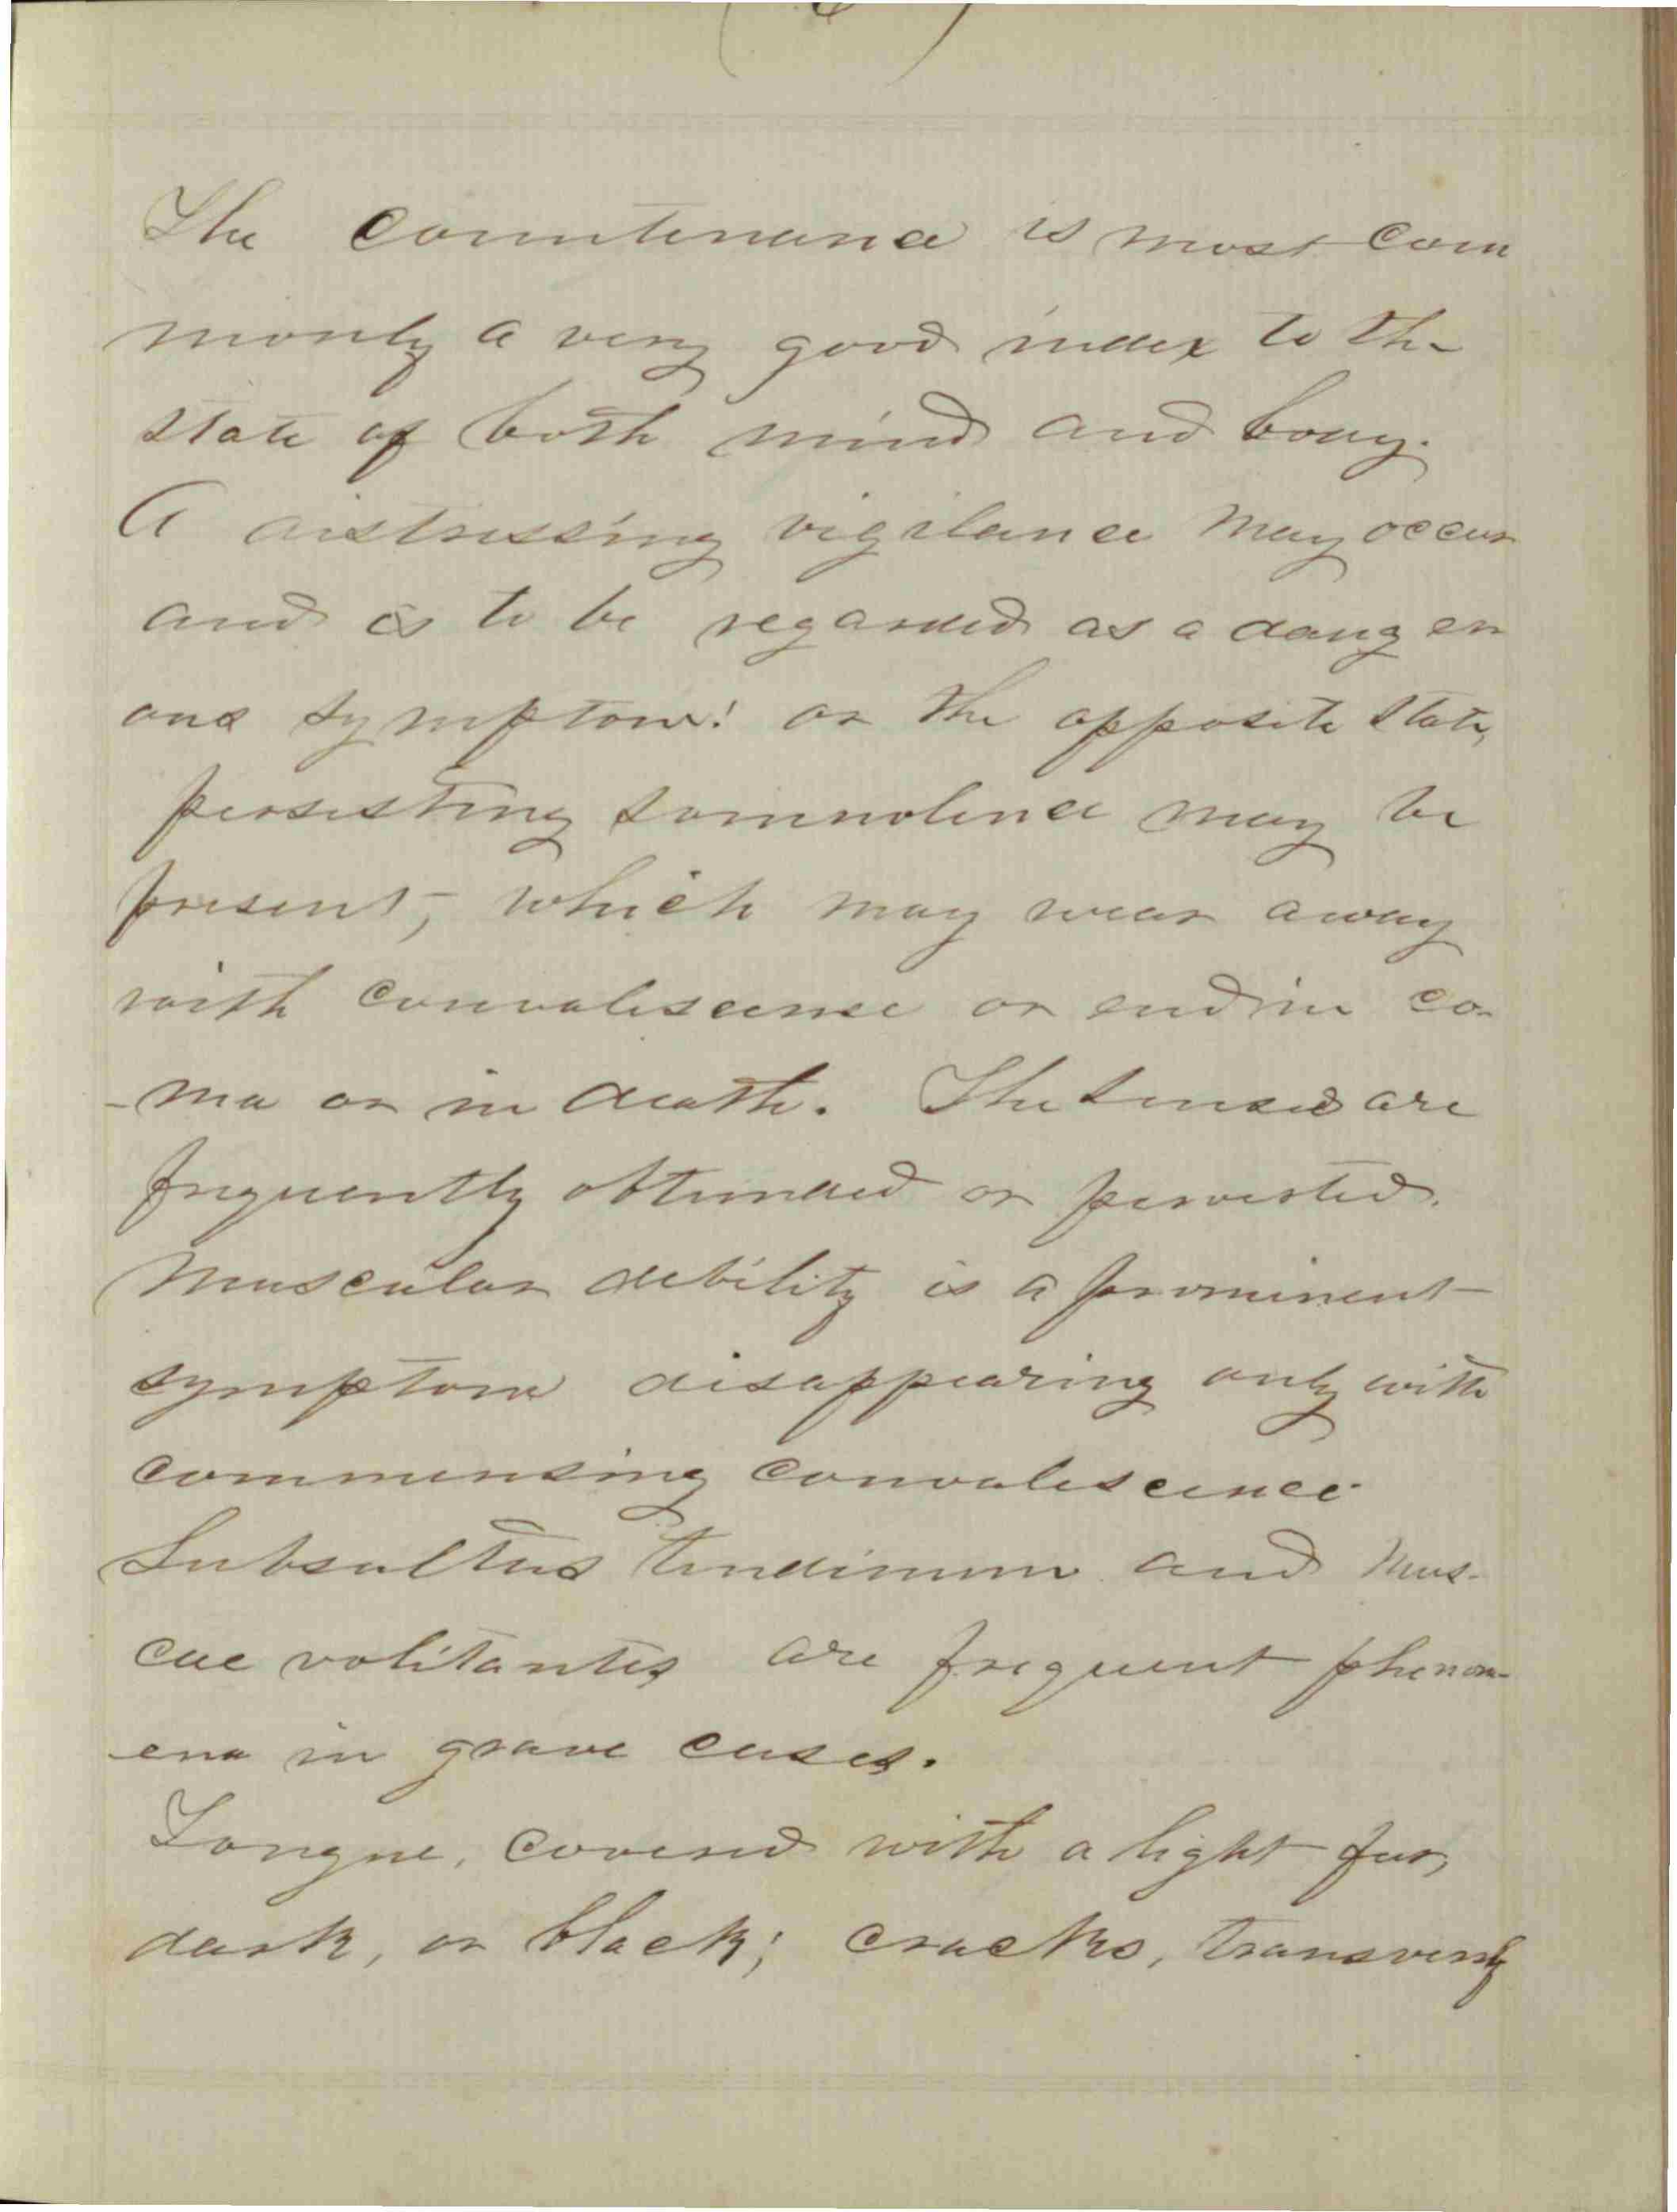 The countenance is most com
monly a very good index to the
state of both mind and body.
A distressing vigilance may occur
and is to be regarded as a danger
ous symptom: or the opposite state,
persisting somnolence may be
present, which may wear away
with convalescence or end in co-
-ma or in death. The senses are
frequently obtunded or perverted.
Muscular debility is a prominent
symptom disappearing only with
commensing convalescence.
Subsultus tendinum and Mus-
cae volitantes are frequent phenom-
-ena in grave cases.
Tongue, covered with a light fur,
dark, or black; cracks, transversly